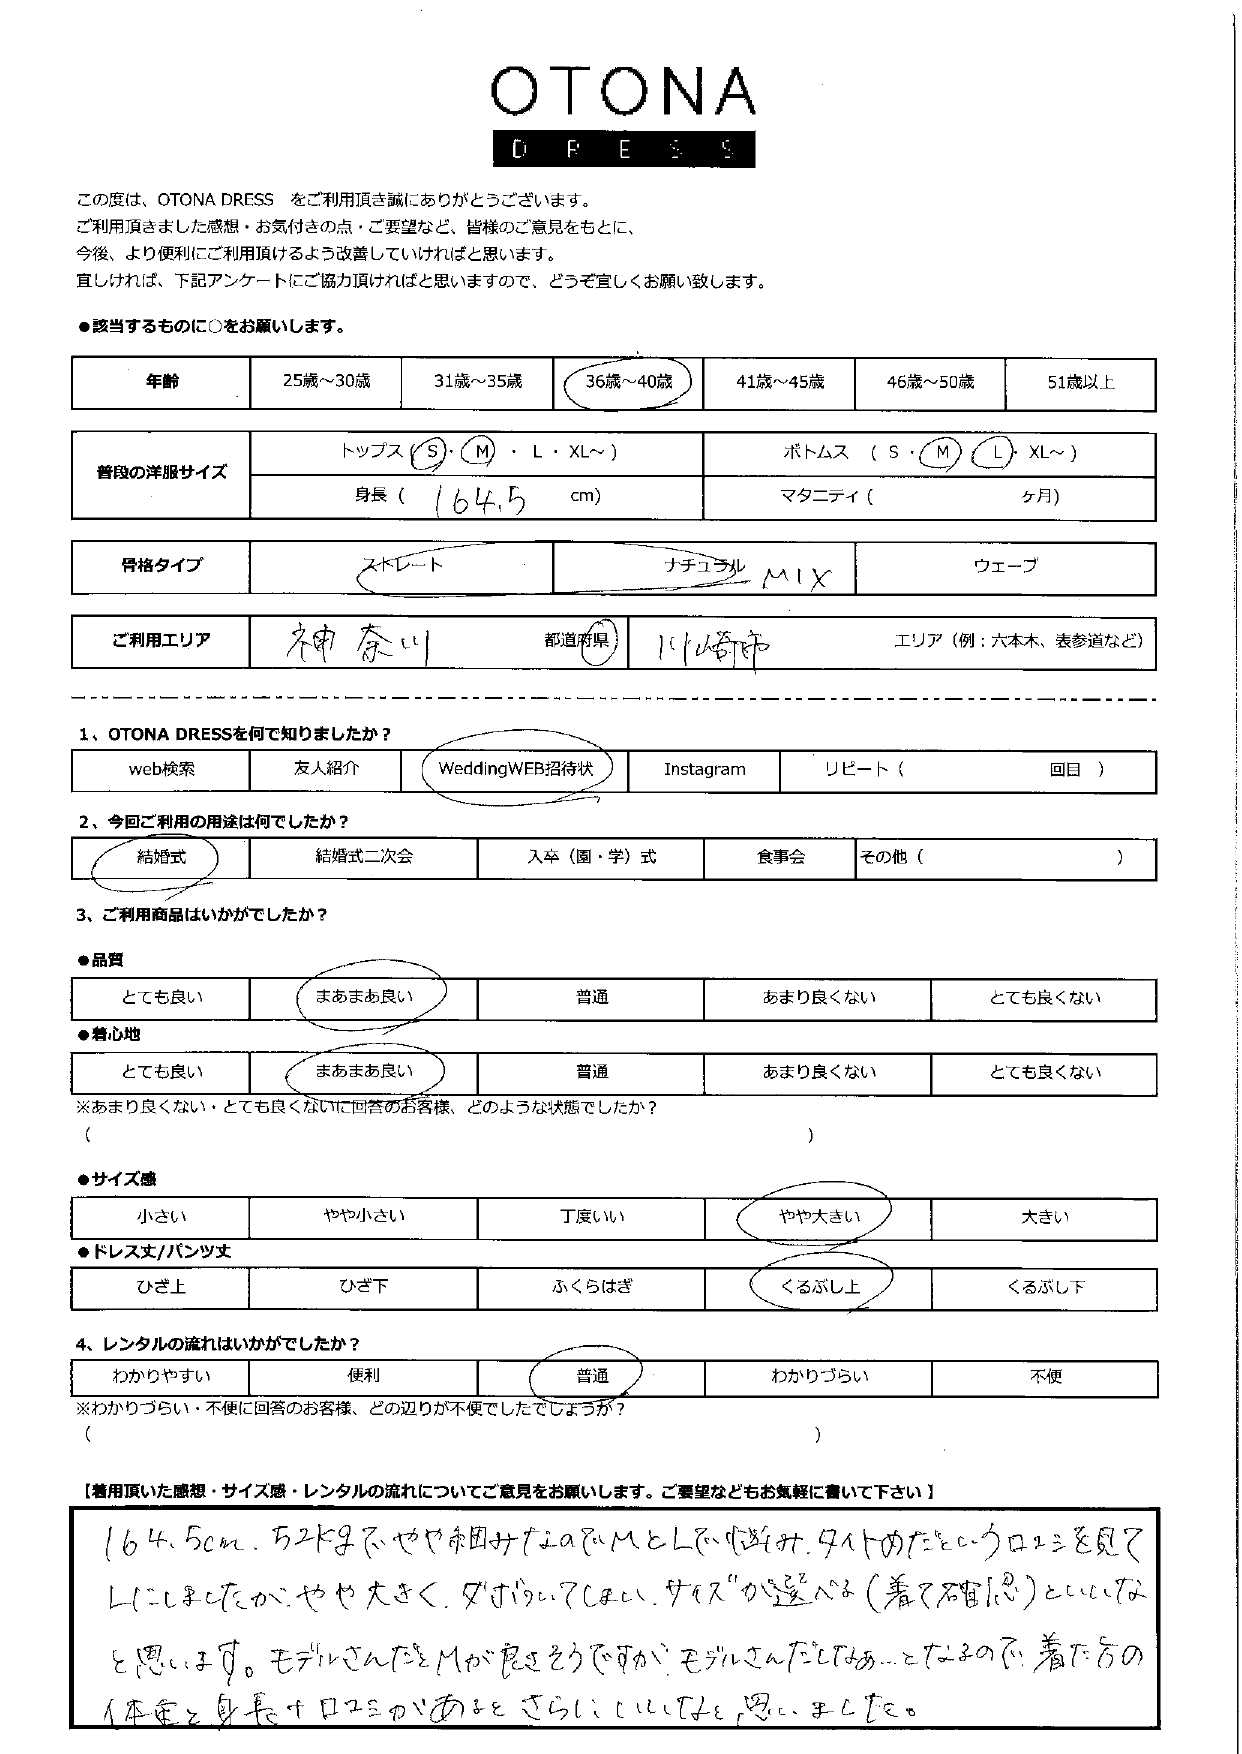 OTONA
DRESS
この度は、OTONA DRESS をご利用頂き誠にありがとうございます。
ご利用頂きました感想・お気付きの点・ご要望など、皆様のご意見をもとに、
今後、より便利にご利用頂けるよう改善していければと思います。
宜しければ、下記アンケートにご協力頂ければと思いますので、どうぞ宜しくお願い致します。
●該当するものに○をお願いします。
年齢 25歳～30歳 31歳～35歳 36歳～40歳 41歳～45歳 46歳～50歳 51歳以上
普段の洋服サイズ トップス（ S ・ M ・ L ・ XL～ ） ボトムス （ S ・ M ・ L ・ XL～ ）
身長（ 164.5 cm） マタニティ（ ケ月）
骨格タイプ ストレート ナチュラル MIX ウェーブ
ご利用エリア 神奈川 都道府県 川崎市 エリア（例：六本木、表参道など）
1、OTONA DRESSを何で知りましたか？
web検索 友人紹介 WeddingWEB招待状 Instagram リピート（ 回目 ）
2、今回ご利用の用途は何でしたか？
結婚式 結婚式二次会 入卒（園・学）式 食事会 その他（ ）
3、ご利用商品はいかがでしたか？
●品質
とても良い まあまあ良い 普通 あまり良くない とても良くない
●着心地
とても良い まあまあ良い 普通 あまり良くない とても良くない
※あまり良くない・とても良くないに回答のお客様、どのような状態でしたか？
（ ）
●サイズ感
小さい やや小さい 丁度いい やや大きい 大きい
●ドレス丈/パンツ丈
ひざ上 ひざ下 ふくらはぎ くるぶし上 くるぶし下
4、レンタルの流れはいかがでしたか？
わかりやすい 便利 普通 わかりづらい 不便
※わかりづらい・不便に回答のお客様、どの辺りが不便でしたでしょうか？
（ ）
【着用頂いた感想・サイズ感・レンタルの流れについてご意見をお願いします。ご要望などもお気軽に書いて下さい】
164.5cm、52kgでやや細みなのでMとLで悩み、タイトめだという口コミを見て
Lにしましたが、やや大きく、ダボついてしまい、サイズが選べる（着て確認）といいな
と思います。モデルさんだとMが良さそうですが、モデルさんだしなぁ…となるので、着た方の
体重と身長＋口コミがあるとさらにいいなと思いました。